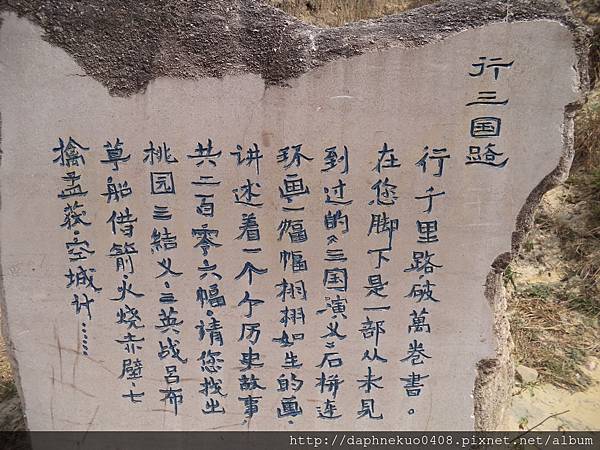 行三国路
行千里路破萬卷書。
在您脚下是一部从未见
到过的《三国演义》石拼连
环画,一幅幅栩栩如生的画,
讲述着一个个历史故事,
共二百零六幅,请您找出
桃园三結义,三英战吕布
草船借箭火烧赤壁,七
擒孟获,空城计……
http://daphnekuo0408.pixnet.net/album